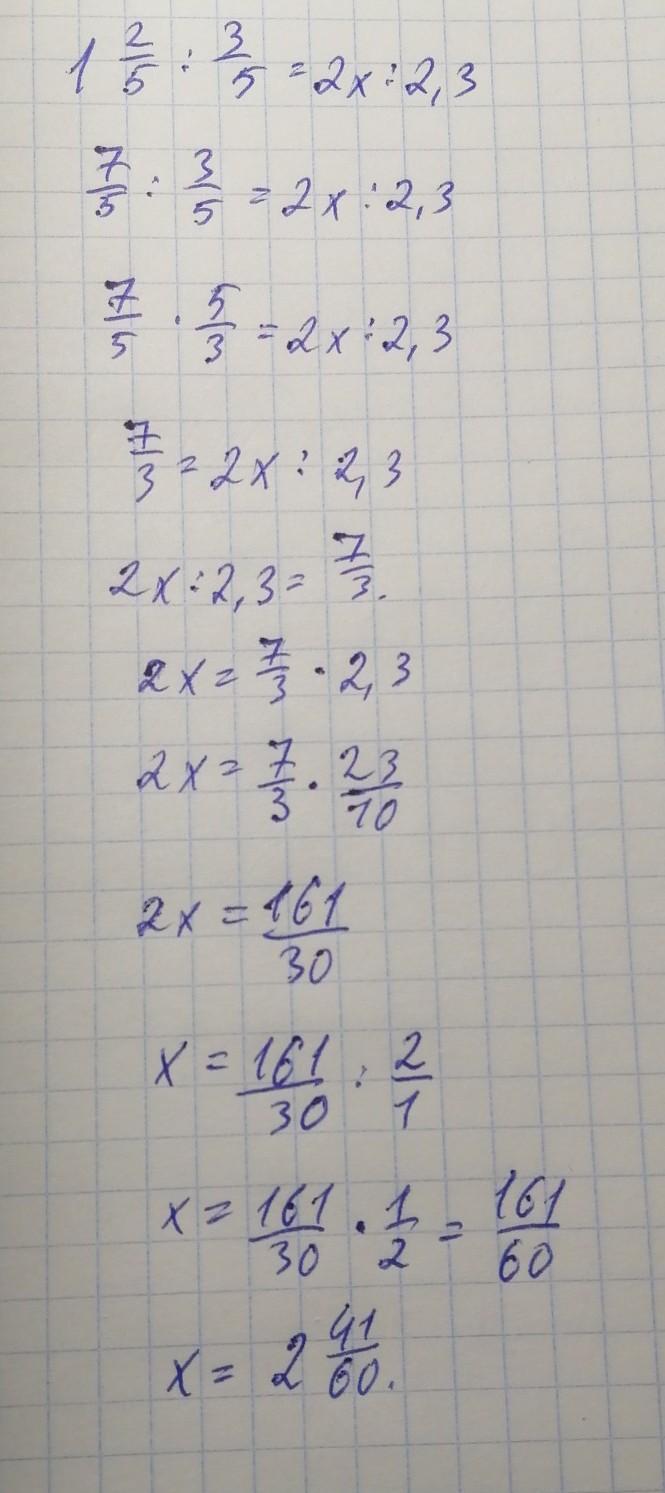 1 2/5 : 3/5 = 2x : 2,3
7/5 : 3/5 = 2x : 2,3
7/5 · 5/3 = 2x : 2,3
7/3 = 2x : 2,3
2x : 2,3 = 7/3.
2x = 7/3 · 2,3
2x = 7/3 · 23/10
2x = 161/30
x = 161/30 : 2/1
x = 161/30 · 1/2 = 161/60
x = 2 41/60.